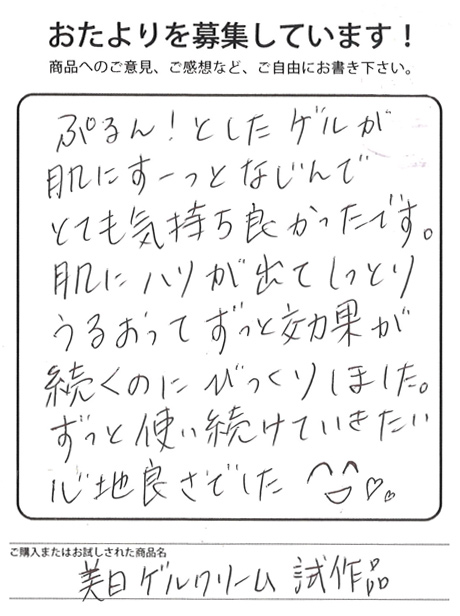 おたよりを募集しています！
商品へのご意見、ご感想など、ご自由にお書き下さい。
ぷるん！としたゲルが
肌にすーっとなじんで
とても気持ち良かったです。
肌にハリが出てしっとり
うるおってずっと効果が
続くのにびっくりしました。
ずっと使い続けていきたい
心地良さでした
ご購入またはお試しされた商品名
美白ゲルクリーム 試作品